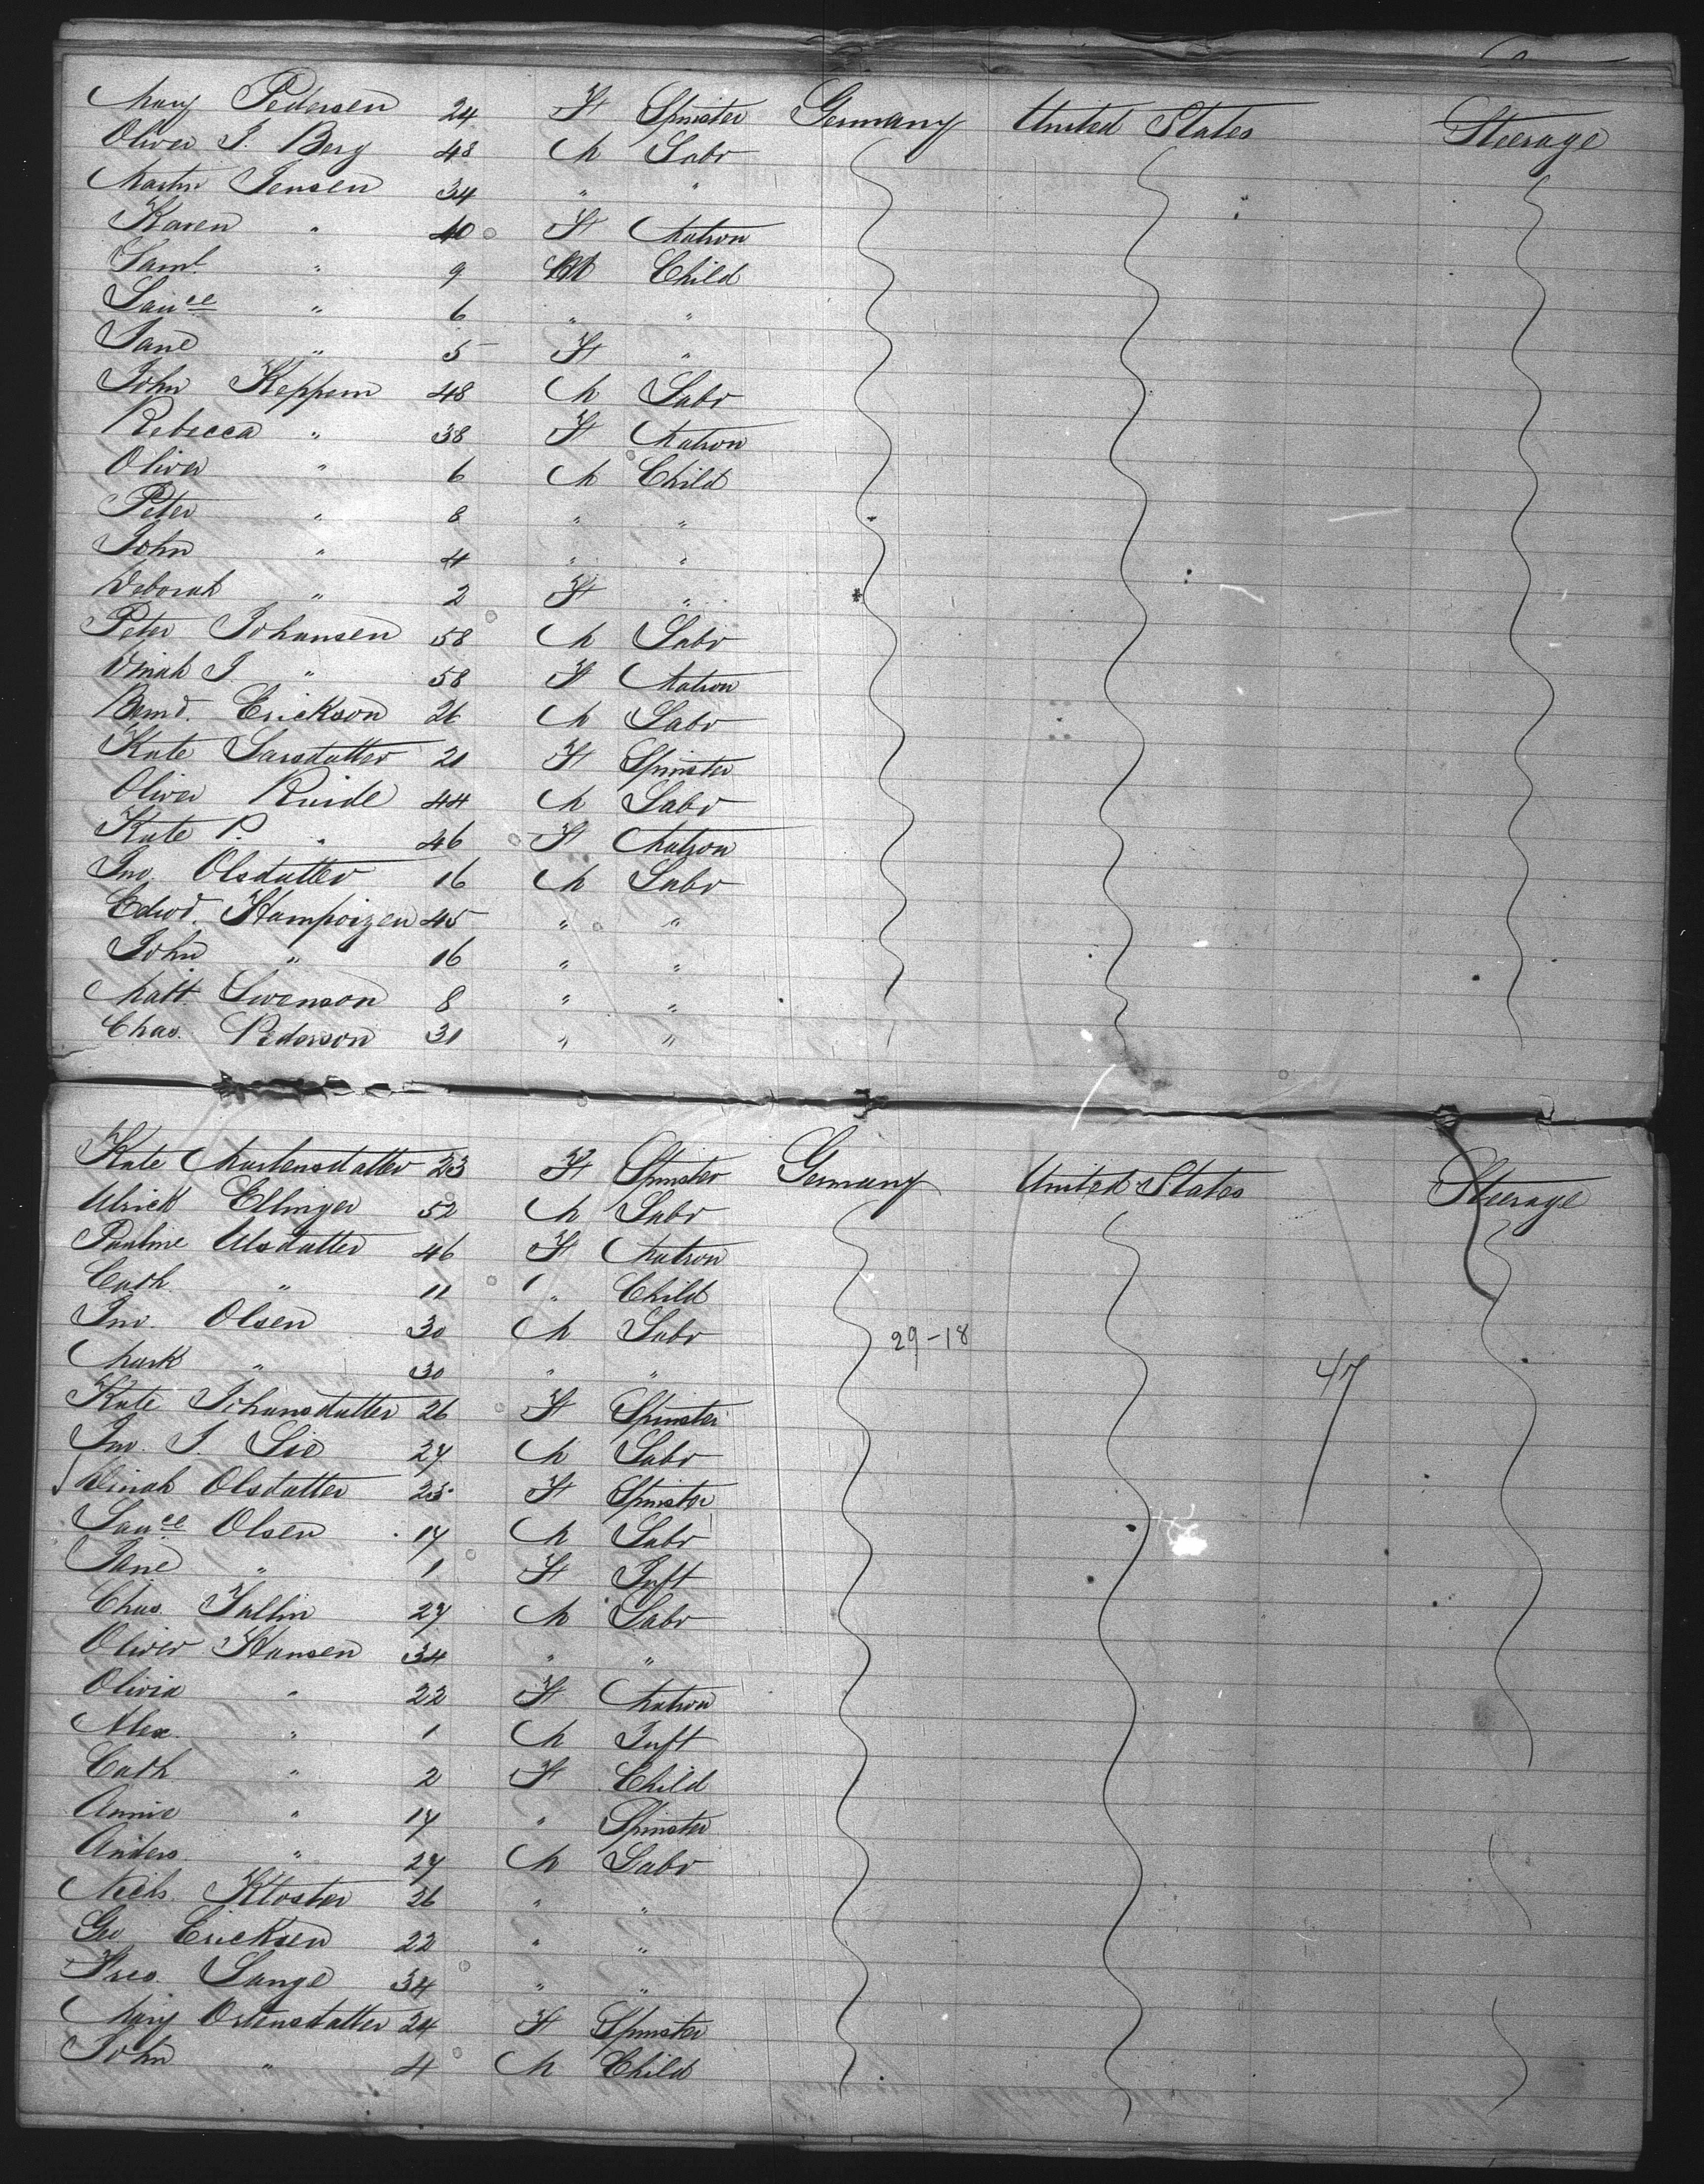 Mary Pedersen 24 F Spinster Germany United States Steerage
Oliver J. Berg 48 M Labr
Martin Jensen 34 " "
Karen " 40 F Matron
Saml " 9 M Child
Laurce " 6 " "
Jane " 5 F "
John Keppem 48 M Labr
Rebecca " 38 F Matron
Oliver " 6 M Child
Peter " 8 " "
John " 4 " "
Deborah " 2 F "
Peter Johansen 58 M Labr
Dinah J. " 58 F Matron
Bernd. Erickson 26 M Labr
Kate Larsdatter 21 F Spinster
Oliver 44 M Labr
Kate P. " 46 F Matron
Jno. Olsdatter 16 M Labr
Edwd. 45 " "
John " 16 " "
Matt. Swenson 8 " "
Chas. Pederson 31 " "
Kate Martensdatter 23 F Spinster Germany United States Steerage
Ulrick Ellinger 52 M Labr
Pauline Ulsdatter 46 F Matron
Cath. " 11 " Child
Jno. Olsen 30 M Labr 29-18
Mark " 30 " " 47
Kate Johansdatter 26 F Spinster
Jno. J. Lie 27 M Labr
Dinah Olsdatter 25 F Spinster
Laurce Olsen 17 M Labr
Jane " 1 F Inft
Chas. Tallin 27 M Labr
Oliver Hansen 34 " "
Olivia " 22 F Matron
Alex. " 1 M Inft
Cath " 2 F Child
Annie " 17 " Spinster
Anders " 27 M Labr
Nichs. Kloster 26 " "
Geo Ericksen 22 " "
Lange 34 " "
Mary Ostensdatter 24 F Spinster
John " 4 M Child